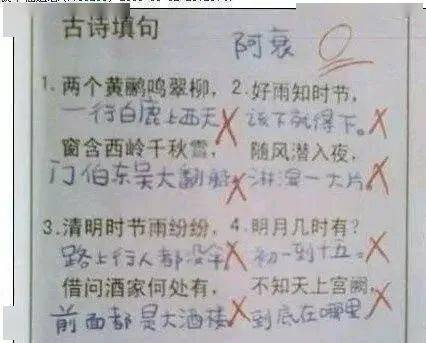 古诗填句
阿衰
1.两个黄鹂鸣翠柳，
一行白鹿上西天
窗含西岭千秋雪，
门伯东吴大翻船
2.好雨知时节，
该下就得下。
随风潜入夜，
淋湿一大片
3.清明时节雨纷纷，
路上行人都没伞
借问酒家何处有，
前面都是大酒楼
4.明月几时有？
初一到十五。
不知天上宫阙，
到底在哪里